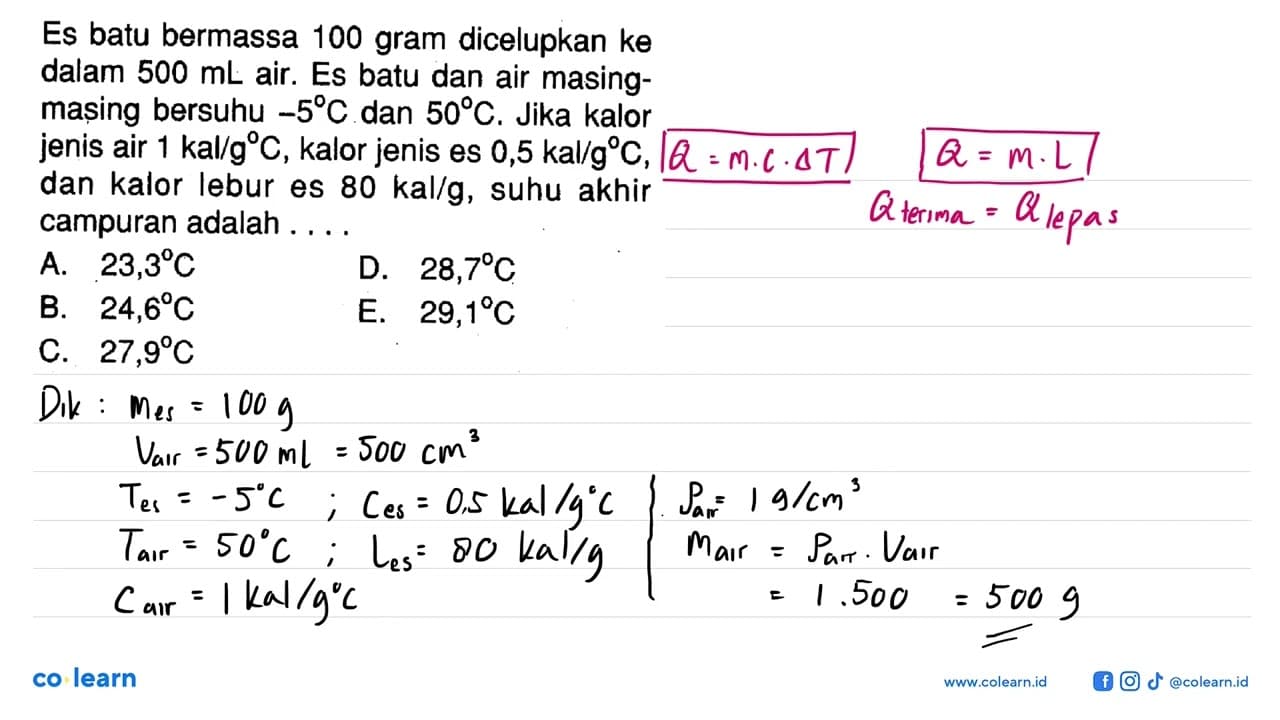 Es batu bermassa 100 gram dicelupkan ke
dalam 500 mL air. Es batu dan air masing-
masing bersuhu –5°C dan 50°C. Jika kalor
jenis air 1 kal/g°C, kalor jenis es 0,5 kal/g°C,
dan kalor lebur es 80 kal/g, suhu akhir
campuran adalah . . . .
A. 23,3°C
B. 24,6°C
C. 27,9°C
D. 28,7°C
E. 29,1°C
Q = m.c.ΔT
Q = m.L
Qterima = Qlepas
Dik : mes = 100 g
Vair = 500 ml = 500 cm³
Tes = -5°C ; Ces = 0,5 kal/g°C
Tair = 50°C ; Les = 80 kal/g
Cair = 1 kal/g°C
ρair = 1 g/cm³
mair = ρair . Vair
= 1.500 = 500 g
co learn
www.colearn.id
@colearn.id